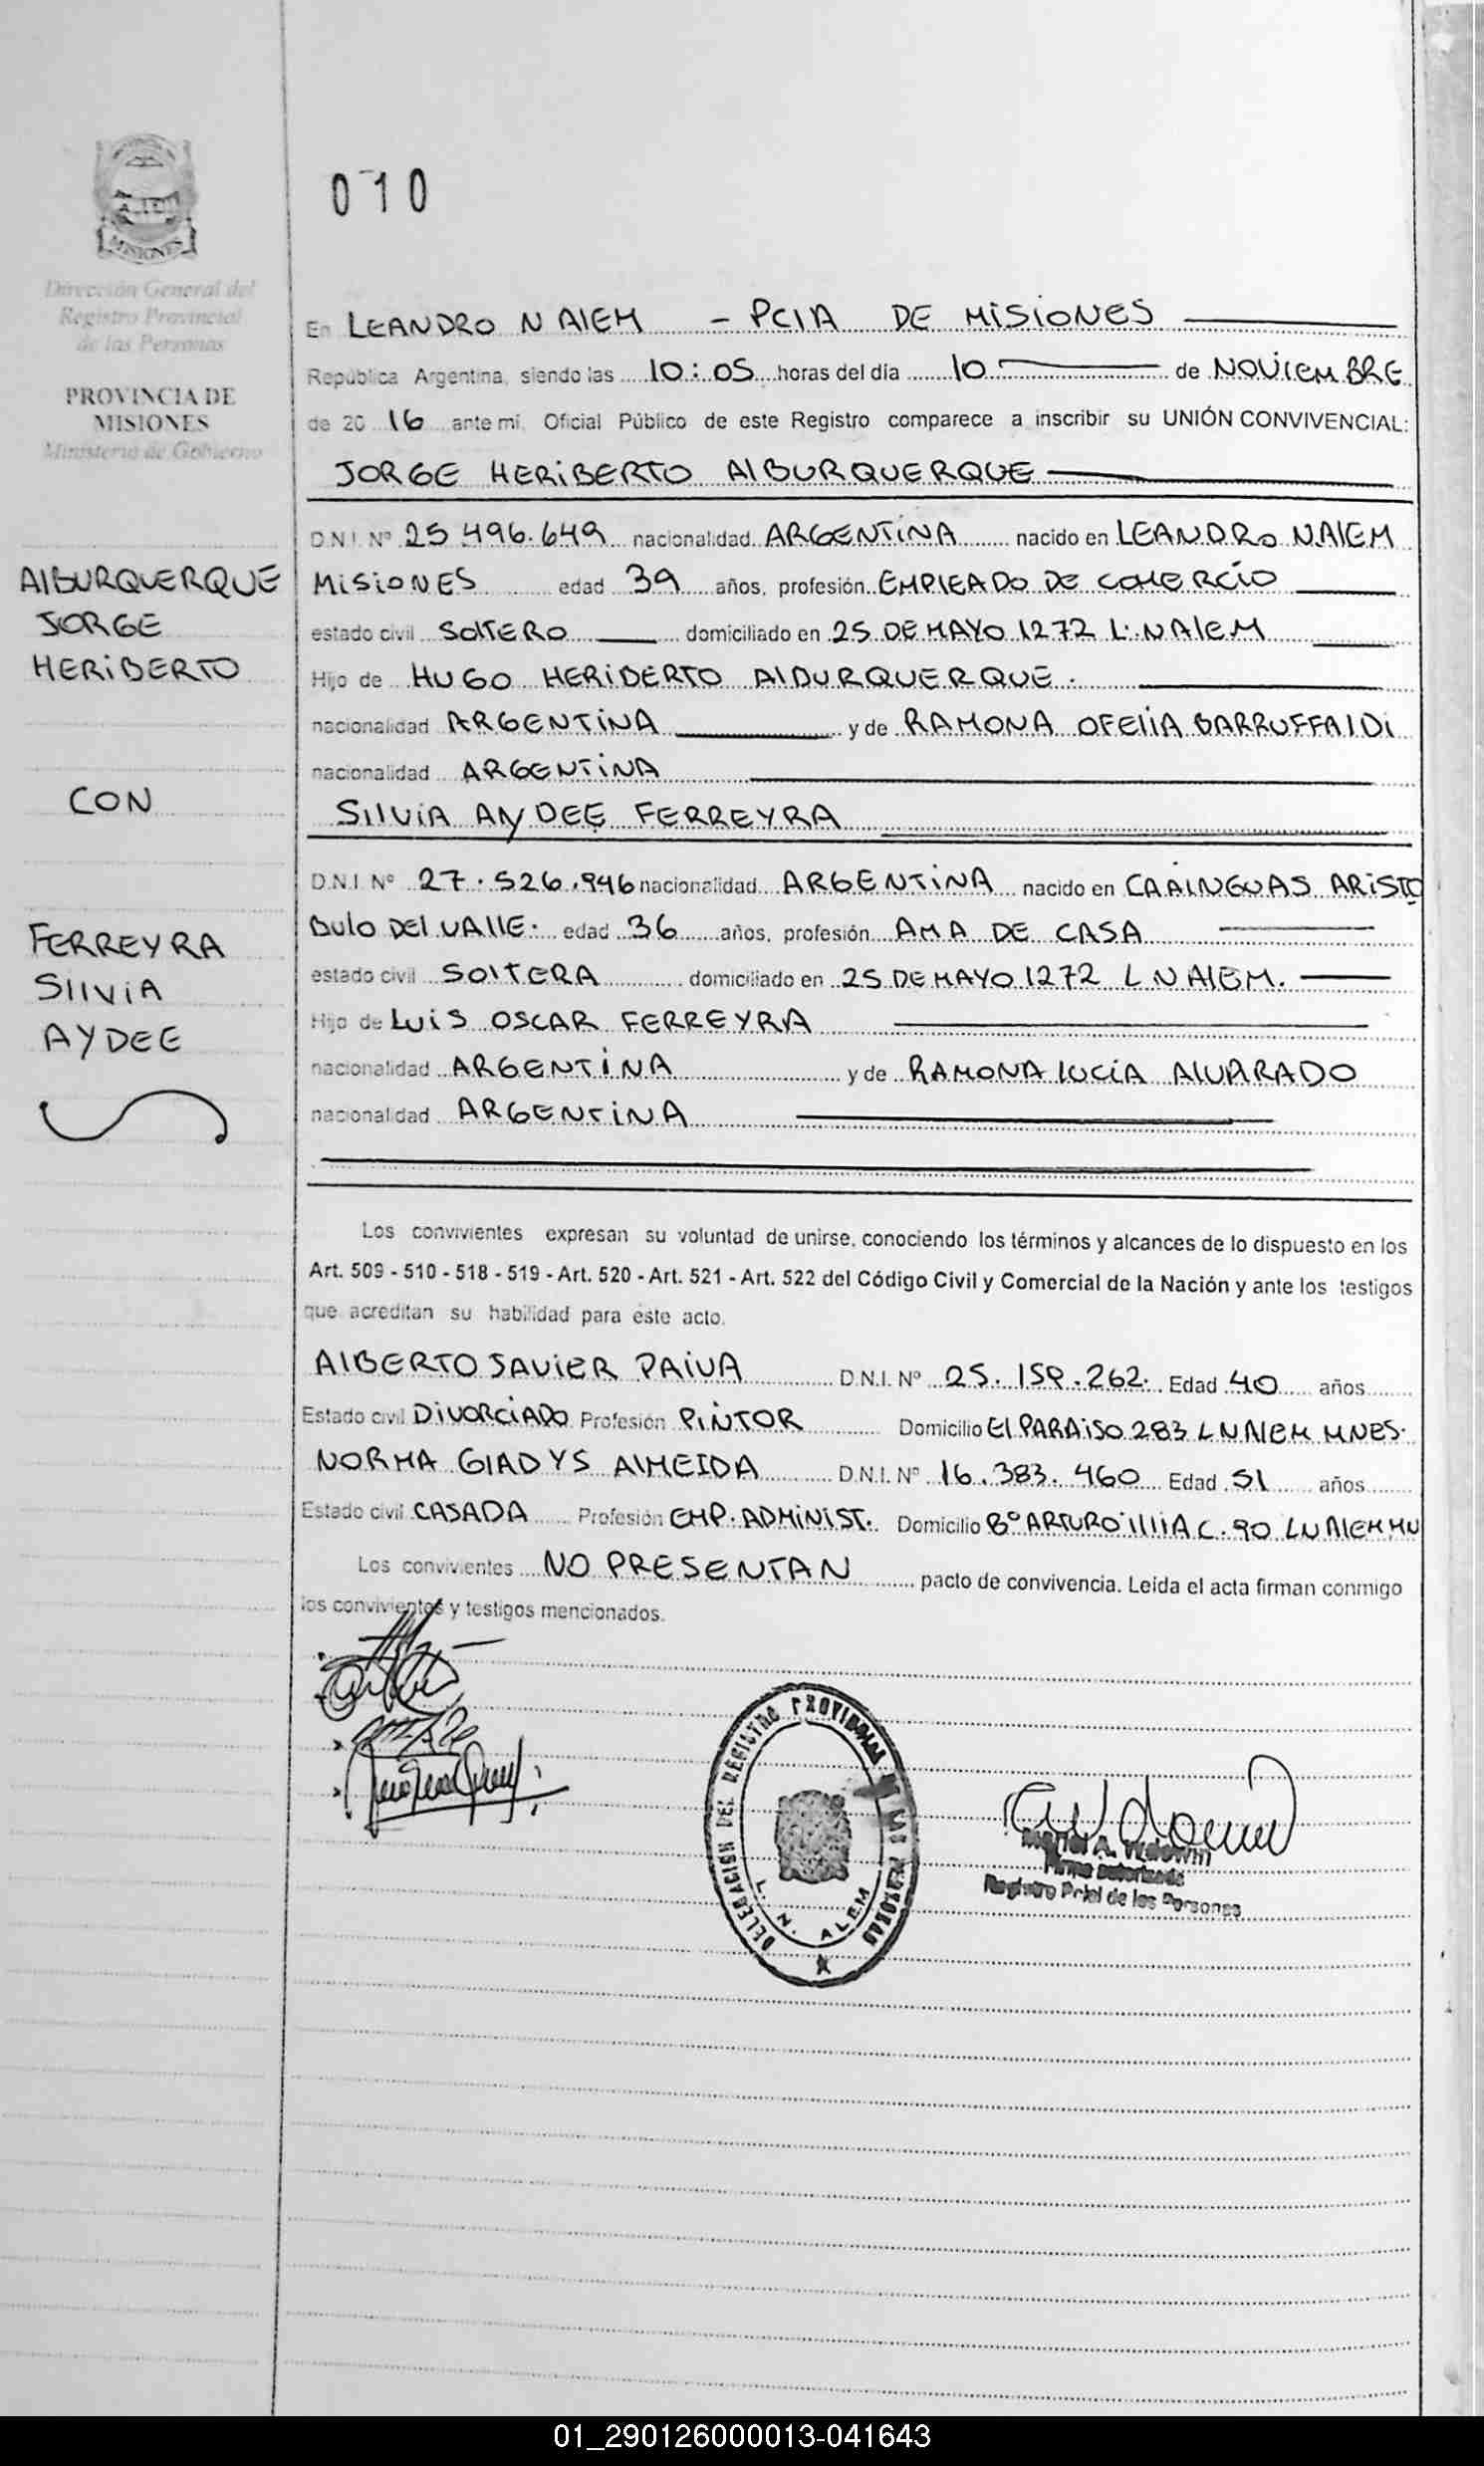 A. 1EM
MISIONES
Dirección General del
Registro Provincial
de las Personas
PROVINCIA DE
MISIONES
Ministerio de Gobierno
AlBURQUERQUE
JORGE
HERiBERTO
CON
FERREYRA
SilViA
AYDEE
010
En LEANDRO N AlEM - PCIA DE MiSiONES
República Argentina, siendo las 10:05 horas del día 10 de NOViEMBRE
de 2016 ante mi, Oficial Público de este Registro comparece a inscribir su UNIÓN CONVIVENCIAL:
JORGE HERiBERTO AlBURQUERQUE
D.N.I. Nº 25 496.649 nacionalidad ARGENTiNA nacido en LEANDRO NAlEM
MiSiONES edad 39 años, profesión EMPlEADO DE COMERCiO
estado civil SOlTERO domiciliado en 25 DE MAYO 1272 L.NAlEM
Hijo de HUGO HERiBERTO AlBURQUERQUE.
nacionalidad ARGENTiNA y de RAMONA OFEliA BARRUFFAlDi
nacionalidad ARGENTiNA
SilViA AYDEE FERREYRA
D.N.I. Nº 27.526.946 nacionalidad ARGENTiNA nacido en CAAiNGUAS ARiSTO
BUlO DEl VAllE. edad 36 años, profesión AMA DE CASA
estado civil SOlTERA domiciliado en 25 DE MAYO 1272 L N AlEM.
Hijo de LUiS OSCAR FERREYRA
nacionalidad ARGENTiNA y de RAMONA lUCiA AlVARADO
nacionalidad ARGENTiNA
Los convivientes expresan su voluntad de unirse, conociendo los términos y alcances de lo dispuesto en los
Art. 509 - 510 - 518 - 519 - Art. 520 - Art. 521 - Art. 522 del Código Civil y Comercial de la Nación y ante los testigos
que acreditan su habilidad para este acto.
AlBERTO JAViER PAiVA D.N.I. Nº 25.159.262. Edad 40 años
Estado civil DiVORCiADO Profesión PiNTOR Domicilio El PARAiSO 283 L N AlEM MNES.
NORMA GlADYS AlMEIDA D.N.I. Nº 16.383.460 Edad 51 años
Estado civil CASADA Profesión EMP. ADMiNiST. Domicilio Bº ARTURO IlliA C. 90 LN AlEM MN
Los convivientes NO PRESENTAN pacto de convivencia. Leída el acta firman conmigo
los convivientes y testigos mencionados.
DELEGACION DEL REGISTRO PROVINCIAL
L. N. ALEM
Firma autorizada
Registro Prial de las Personas
01_290126000013-041643